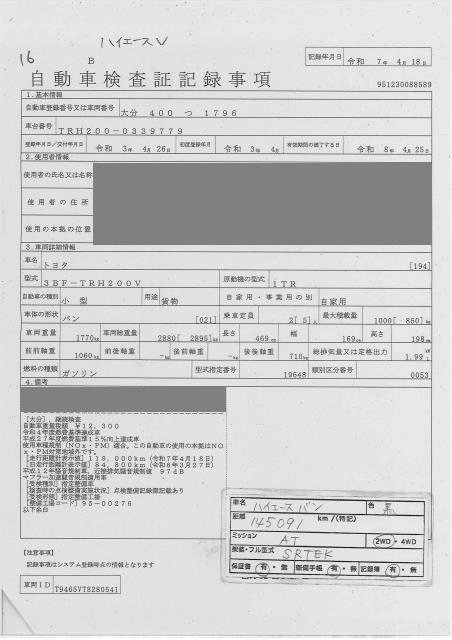 ハイエースV
16
B
記録年月日 令和 7年 4月 18日
自動車検査証記録事項
951230088589
1.基本情報
自動車登録番号又は車両番号 大分 400 つ 1796
車台番号 TRH200-0339779
登録年月日/交付年月日 令和 3年 4月 26日 初度登録年月 令和 3年 4月 有効期間の満了する日 令和 8年 4月 25日
2.使用者情報
使用者の氏名又は名称
使用者の住所
使用の本拠の位置
3.車両詳細情報
車名 トヨタ [194]
型式 3BF-TRH200V 原動機の型式 1TR
自動車の種別 小型 用途 貨物 自家用・事業用の別 自家用
車体の形状 バン [021] 乗車定員 2[ 5]人 最大積載量 1000[ 850]kg
車両重量 1770kg 車両総重量 2880[ 2895]kg 長さ 469cm 幅 169cm 高さ 198cm
前前軸重 1060kg 前後軸重 -kg 後前軸重 -kg 後後軸重 710kg 総排気量又は定格出力 1.99L
燃料の種類 ガソリン 型式指定番号 19648 類別区分番号 0053
4.備考
[大分],継続検査
自動車重量税額 ¥12,300
令和4年度燃費基準達成車
平成27年度燃費基準15%向上達成車
使用車種規制(NOx・PM)適合、この自動車の使用の本拠はNO
x・PM対策地域外です。
[走行距離計表示値]119,000km(令和7年4月18日)
[旧走行距離計表示値]84,800km(令和6年3月27日)
平成12年騒音規制車、近接排気騒音規制値 97dB
マフラー加速騒音規制適用車
[受検種別]指定整備車
[検査時の点検整備実施状況]点検整備記録簿記載あり
[受検形態]指定整備工場
[整備工場コード]95-00276
以下余白
車名 ハイエースバン 色 黒
距離 145091 km/(特記)
ミッション AT 2WD・4WD
架装・フル型式 SRTEK
保証書 有・無 新車手帳 有・無 記録簿 有・無
【注意事項】
記録事項はシステム登録時点の情報となります
車両ID T9465VT8280541